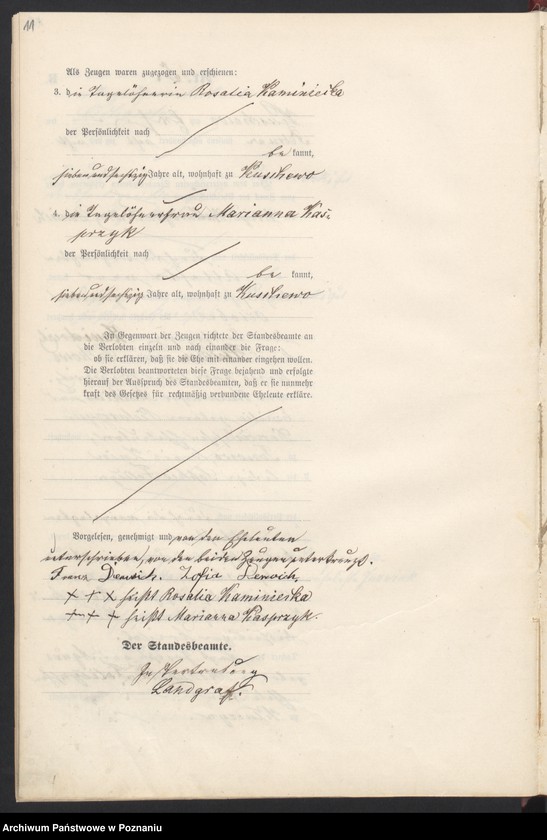 11
Als Zeugen waren zugezogen und erschienen:
3. die Tagelöhnerin Rosalia Kaminieska
der Persönlichkeit nach
be kannt,
siebenundsechzig Jahre alt, wohnhaft zu Kuschewo
4. die Tagelöhnerfrau Marianna Kas-
przyk
der Persönlichkeit nach
be kannt,
siebenundsechzig Jahre alt, wohnhaft zu Kuschewo
In Gegenwart der Zeugen richtete der Standesbeamte an
die Verlobten einzeln und nach einander die Frage:
ob sie erklären, daß sie die Ehe mit einander eingehen wollen.
Die Verlobten beantworteten diese Frage bejahend und erfolgte
hierauf der Ausspruch des Standesbeamten, daß er sie nunmehr
kraft des Gesetzes für rechtmäßig verbundene Eheleute erkläre.
Vorgelesen, genehmigt und von den Eheleuten
unterschrieben, von den beiden Zeugen unterkreuzt.
Franz Zofia
+ + + heißt Rosalia Kaminieska
+ + + heißt Marianna Kasprzyk.
Der Standesbeamte.
In Vertretung
Landgraf.
Archiwum Państwowe w Poznaniu